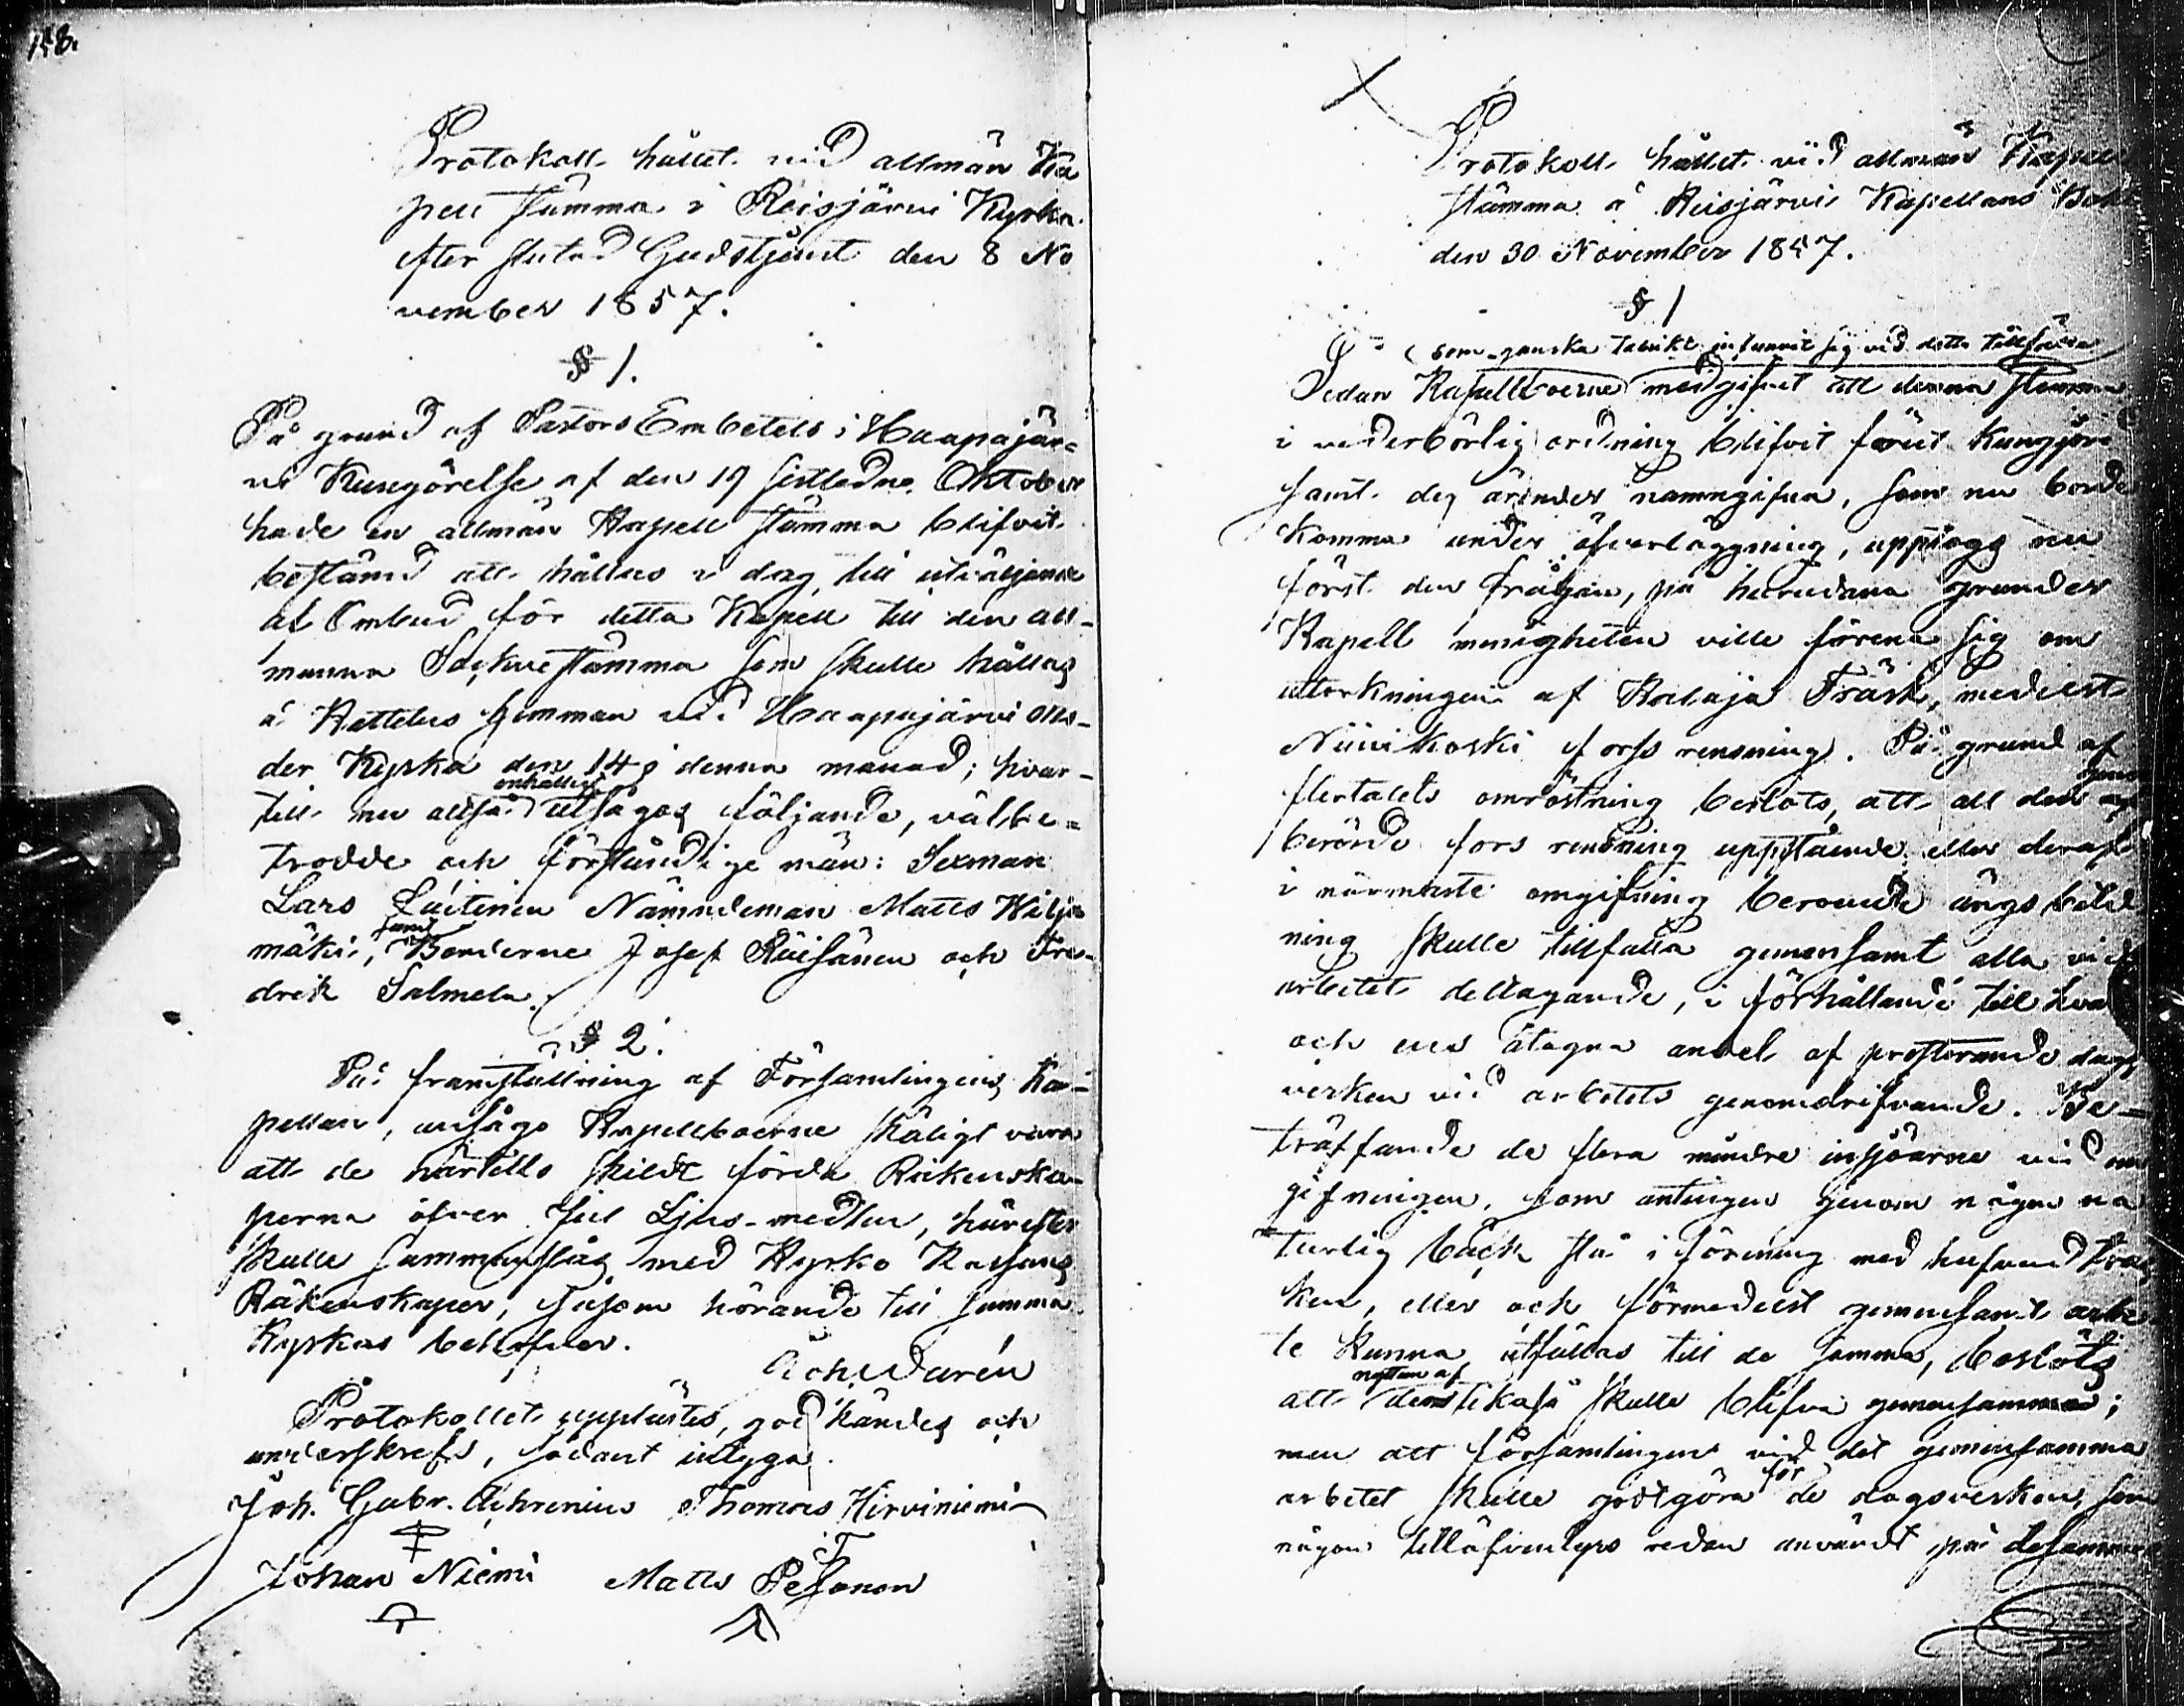 Protokoll hållet vid allmän Ka
pell stämma i Reisjärvi Kyrka
efter slutad Gudstjenst den 8 No
vember 1857.
§ 1.
På grund af Pastors Embetets i Haapajär=
vi Kungörelse af den 19 sistledne Oktober
hade en allmän Kapell stämma blifvit
bestämd att hållas i dag, till utväljande
af Ombud för detta Kapell till den all-
manna Sockne stämma som skulle hållas
å Kattelus hemman vid Haapajärvi mo-
der Kyrka den 14 i denna månad; hvar-
till nu altså enhälligt utsågos följande, välbe=
trodde och förståndige män: Sexman
Lars Luitinen Nämndeman Matts Hilja
mäki, samt Bönderne Josef Räisänen och Fre-
drik Salmela.
§ 2.
På framställning af Församlingens Ka-
pellan, ansågo Kapellboerne skäligt vara
att de härtills skildt förda Räkenska-
perna öfver Ljus-medlen, härefter
skulle sammanslås med Kyrko Kassans
Räkenskaper, såsom hörande till samma
Kyrkas behofver.
Protokollet upplästes, godkändes och
underskrefs, sådant intyga
Joh. Gabr. Achrenius Thomas Hirviniemi
Johan Niemi Matts Pesonen
Protokoll hållet vid allmän Kapell
stämma å Reisjärvi Kapellans Bohl
den 30 November 1857.
§ 1
som ganska talrikt infunnit sig vid detta tillfälle
Sedan Kapellboerne medgifvit att denna stemma
i vederbörlig ordning blifvit förut Kungjord
samt de ärender namngifna, som nu borde
komma under öfverläggning, upptogs nu
först den frågan, på hurudana grunder
Kapell menigheten ville förena sig om
uttorkningen af Kalaja Träsk, medelst
Niinikoski fors rensning. På grund af
flertalets omröstning beslöts, att all den genom
berörde fors rensning uppstående eller deraf
i närmaste omgifning beroende ängs bild
ning skulle tillfalla gemensamt alla vid
arbetet deltagande, i förhållande till hvar
och ens åtagna andel af presterande dags
verken vid arbetets genomdrifvande. Be-
träffande de flera mindre insjöarne vid om
gifningen, som antingen genom någon na
turlig bäck stå i förening med hufvud träs
ket, eller och förmedelst gemensamt arbe
te kunna utfällas till de samma, beslöts
att nyttan af dem likaså skulle blifva gemensamma;
men att församlingen vid det gemensamma
arbetet skulle godtgöra för de dagsverken, som
någon tilläfventyrs redan användt på desamma